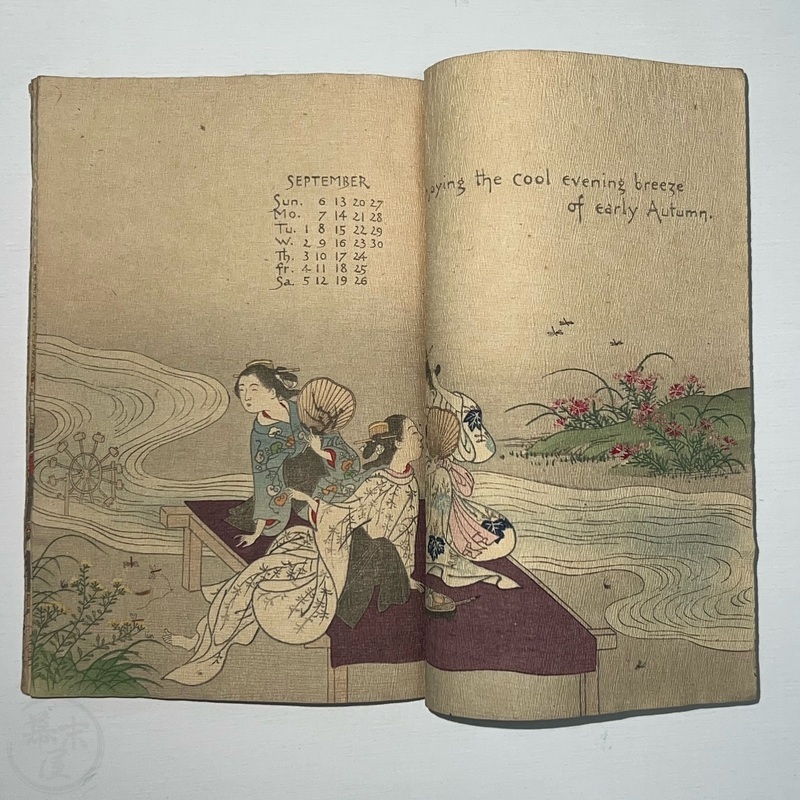 SEPTEMBER
Sun. 6 13 20 27
Mo. 7 14 21 28
Tu. 1 8 15 22 29
W. 2 9 16 23 30
Th. 3 10 17 24
fr. 4 11 18 25
Sa. 5 12 19 26
the cool evening breeze
of early Autumn.